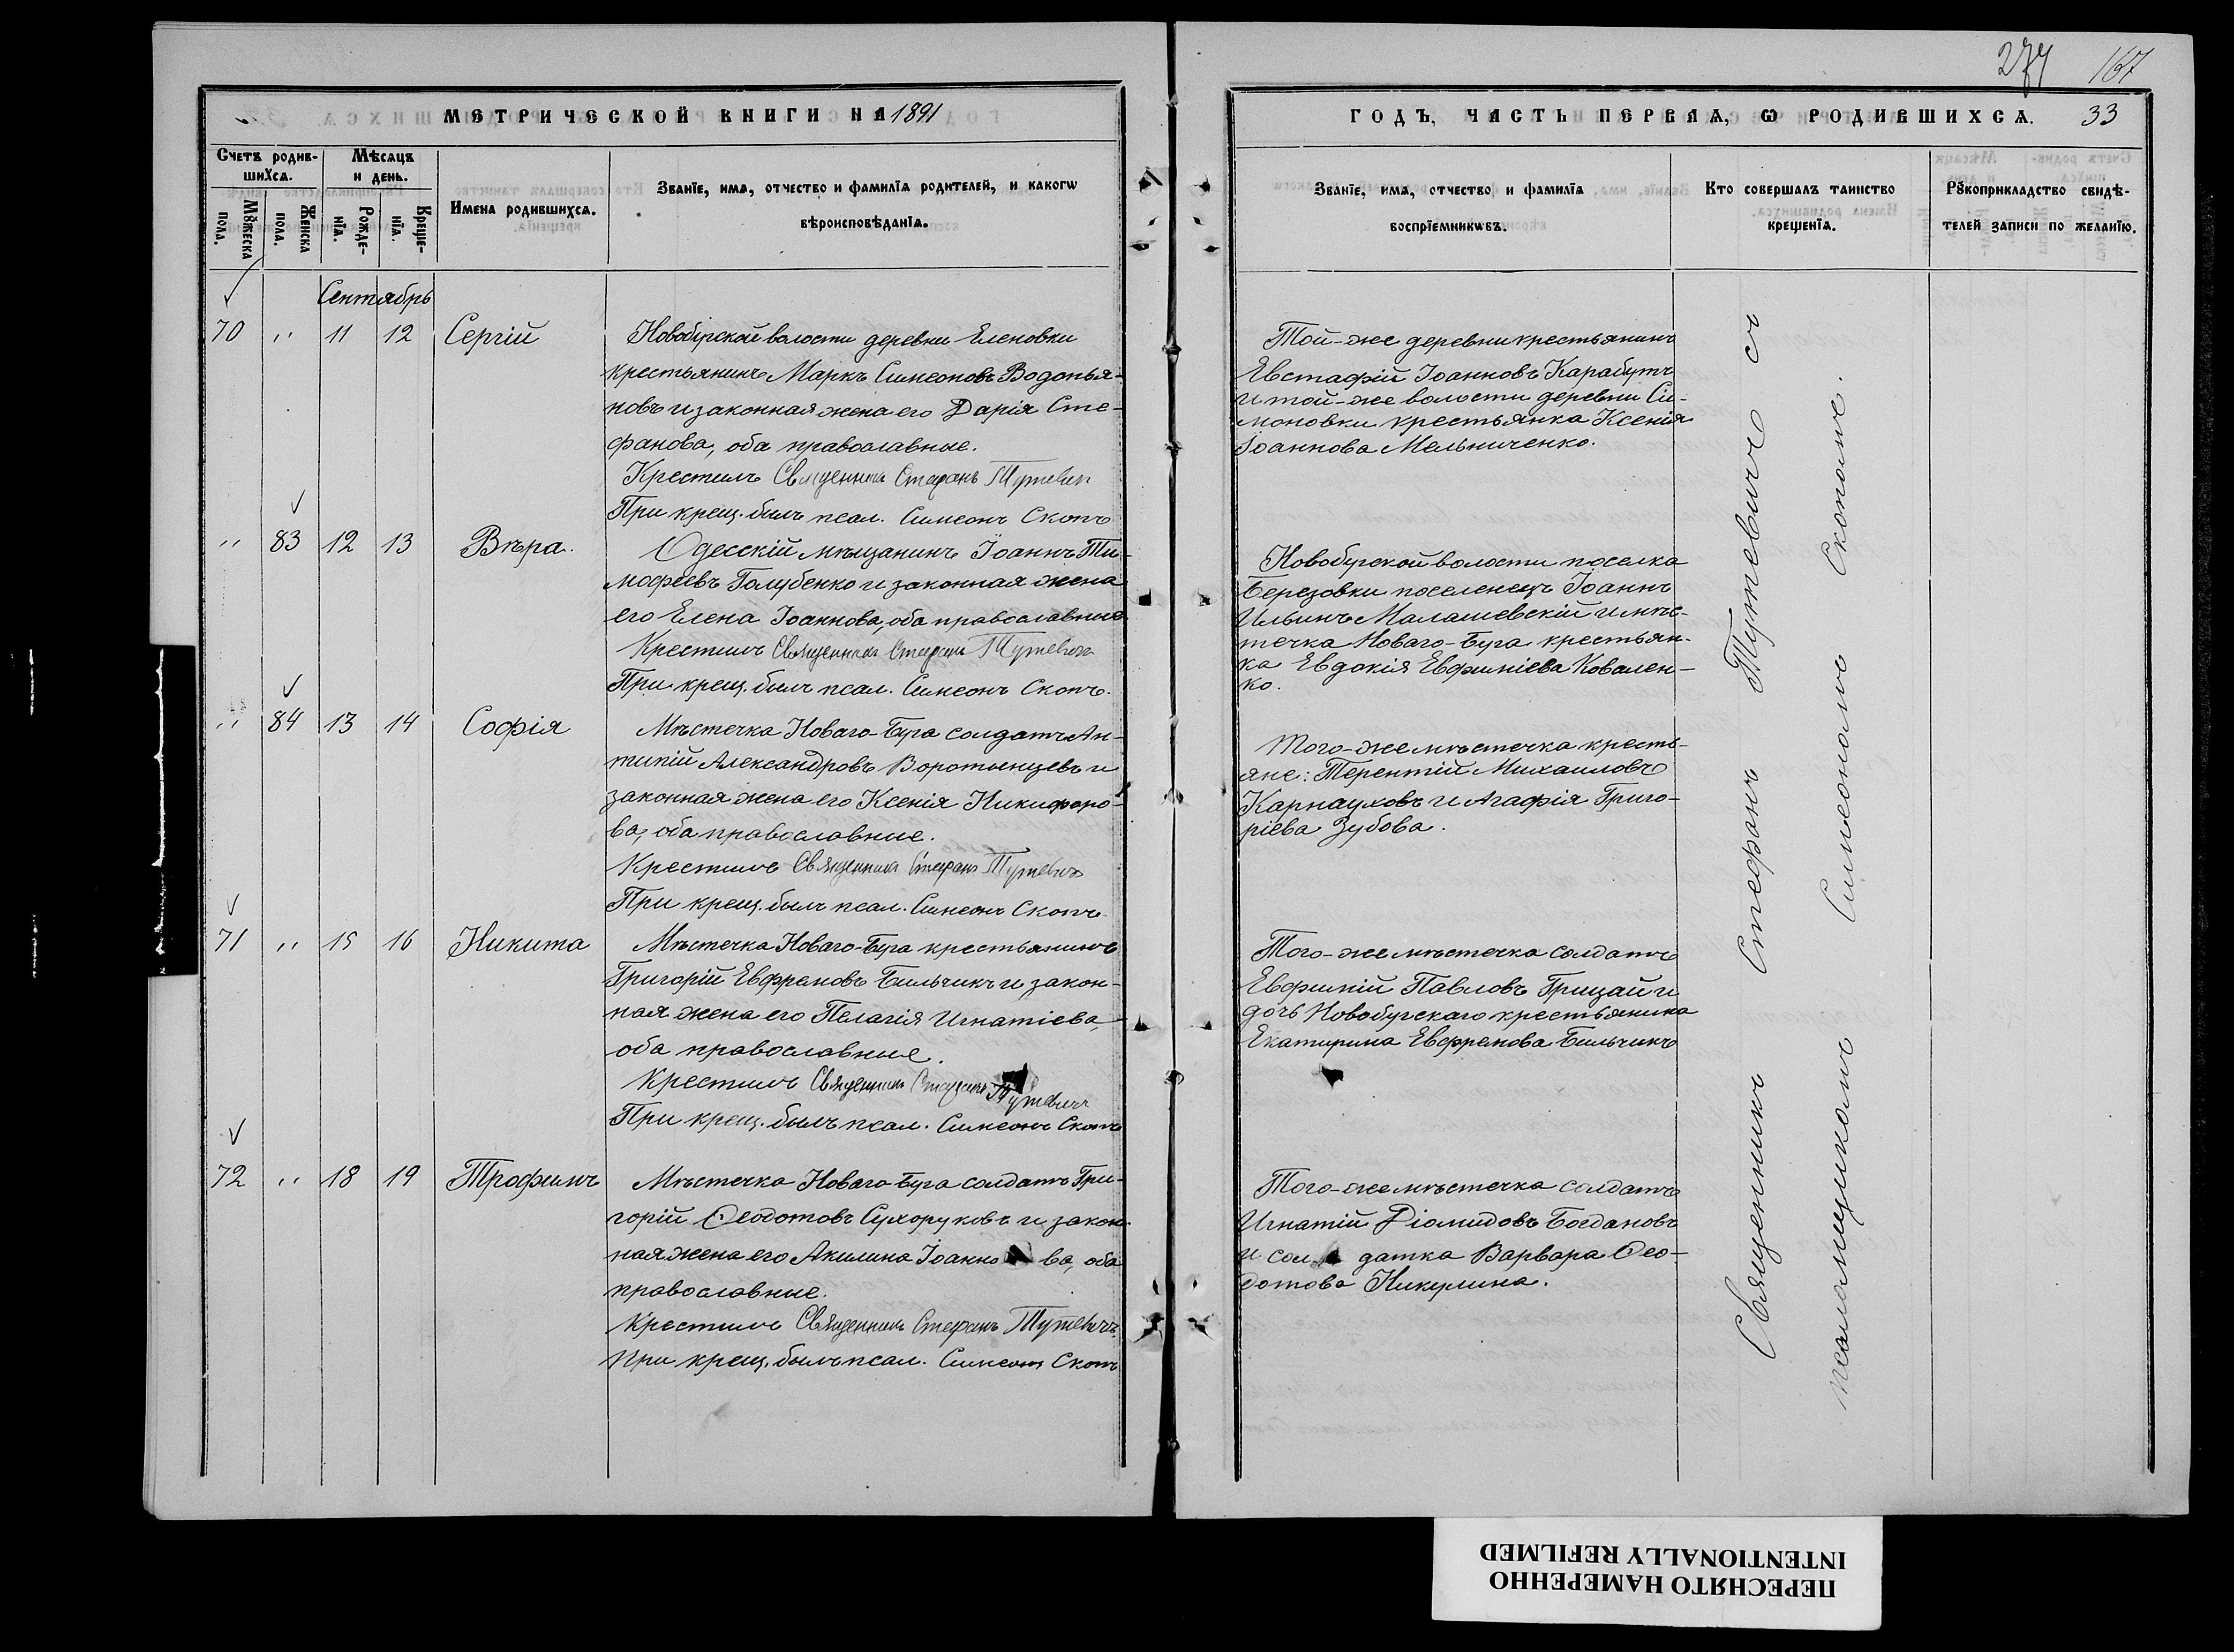 274 167
МЕТРИЧЕСКОЙ КНИГИ НА 1891
ГОДЪ, ЧАСТЬ ПЕРВАѦ, Ѡ РОДИВШИХСѦ. 33
Счетъ родив-
шиХсѧ.
Мѣсѧцъ
и день.
Мꙋжеска
пола.
Женска
пола.
Рожде-
нїѧ.
Креще-
нїѧ.
Имена родившихсѧ.
Званїе, имѧ, отчество и фамилїѧ родителей, и какогѡ
вѣроисповѣданїѧ.
Званїе, имѧ, отчество и фамилїѧ
воспрїемникѡвъ.
Кто совершалъ таинство
крещенїѧ.
Рꙋкоприкладство свидѣ-
телей записи по желанїю.
Сентябрь
70 " 11 12 Сергій
Новобугской волости деревни Еленовки
крестьянинъ Маркъ Симеоновъ Водопья-
новъ и законная жена его Дарія Сте-
фанова, оба православные.
Крестилъ Священникъ Стефанъ Тутевич
При крещ. былъ псал. Симеонъ Скопъ
Той-же деревни крестьянинъ
Евстафій Іоанновъ Карабутъ
и той-же волости деревни Си-
моновки крестьянка Ксенія
Іоаннова Мельниченко.
" 83 12 13 Вѣра.
Одесскій мѣщанинъ Іоаннъ Ти-
мофеевъ Голубенко и законная жена
его Елена Іоаннова, оба православные
Крестилъ Священникъ Стефанъ Тутевичъ
При крещ. былъ псал. Симеонъ Скопъ.
Новобугской волости поселка
Березовки поселенецъ Іоаннъ
Ильинъ Малашевскій и мѣс-
течка Новаго-Буга крестьян-
ка Евдокія Евфиміева Ковален-
ко.
" 84 13 14 Софія
Мѣстечка Новаго-Буга солдатъ Ан-
типій Александровъ Воротынцевъ и
законная жена его Ксенія Никифоро-
ва, оба православные.
Крестилъ Священникъ Стефанъ Тутевичъ
При крещ. былъ псал. Симеонъ Скопъ
Того-же мѣстечка кресть-
яне: Терентій Михаиловъ
Карнауховъ и Агафія Григо-
ріева Зубова.
71 " 15 16 Никита
Мѣстечка Новаго-Буга крестьянинъ
Григорій Евфремовъ Бильчикъ и закон-
ная жена его Пелагія Игнатіева,
оба православные.
Крестилъ Священникъ Стефанъ Тутевичъ
При крещ. былъ псал. Симеонъ Скопъ
Того-же мѣстечка солдатъ
Евфимій Павловъ Грицай и
дочь Новобугскаго крестьянина
Екатирина Евфремова Бильчикъ
72 " 18 19 Трофимъ
Мѣстечка Новаго-Буга солдатъ Гри-
горій Ѳеодотовъ Сухоруковъ и закон-
ная жена его Акилина Іоанно ва, оба
православные.
Крестилъ Священникъ Стефанъ Тутевичъ.
При крещ. былъ псал. Симеонъ Скопъ
Того-же мѣстечка солдатъ
Игнатій Діомидовъ Богдановъ
и сол датка Варвара Ѳео-
дотова Никулина.
Священникъ Стефанъ Тутевичъ съ
псаломщикомъ Симеономъ Скопомъ.
ПЕРЕСНЯТО НАМЕРЕННО
INTENTIONALLY REFILMED